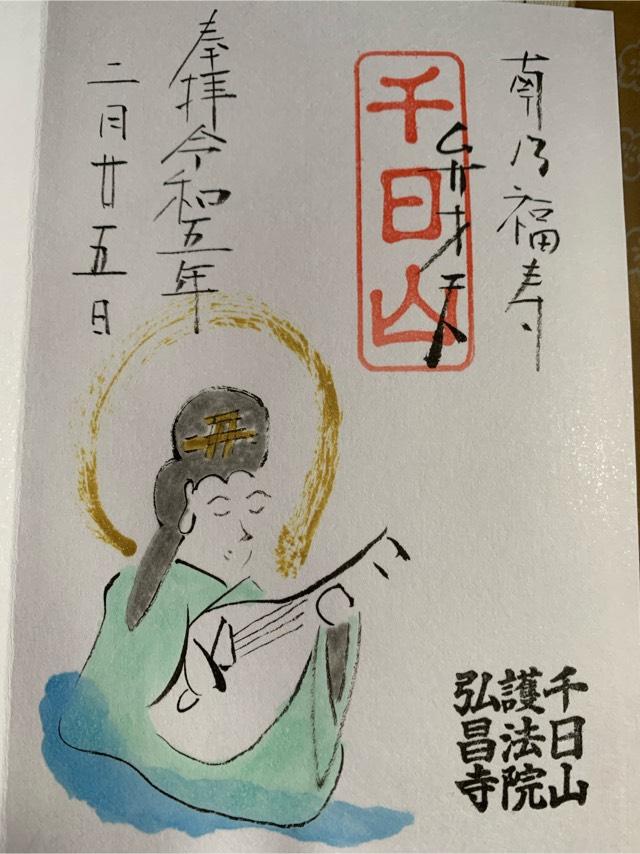 南乃福寿
弁才天
千日山
奉拝令和五年
二月廿五日
千日山
護法院
弘昌寺